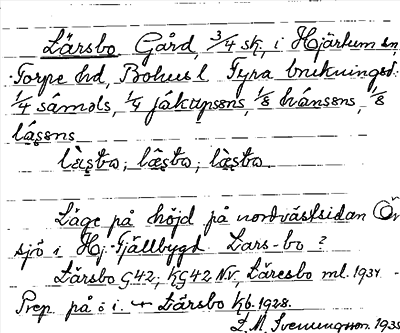 Lärsbo Gård, 3/4 sk, i Hjärtum sn,
Torpe hd, Bohus l Fyra brukningsd.
1/4 såmols, 1/4 jákapsøns, 1/8 hánsøns, 1/8
lásøns
Läge på höjd på nordvästsidan Öv
sjö i Hj. Fjällbygd Lars-bo ?
Lärsbo G42; KG42 NV, Låresbo ml. 1934
Prep på ö i. Lärsbo Kb. 1928.
L. M. Svenungsson. 1935